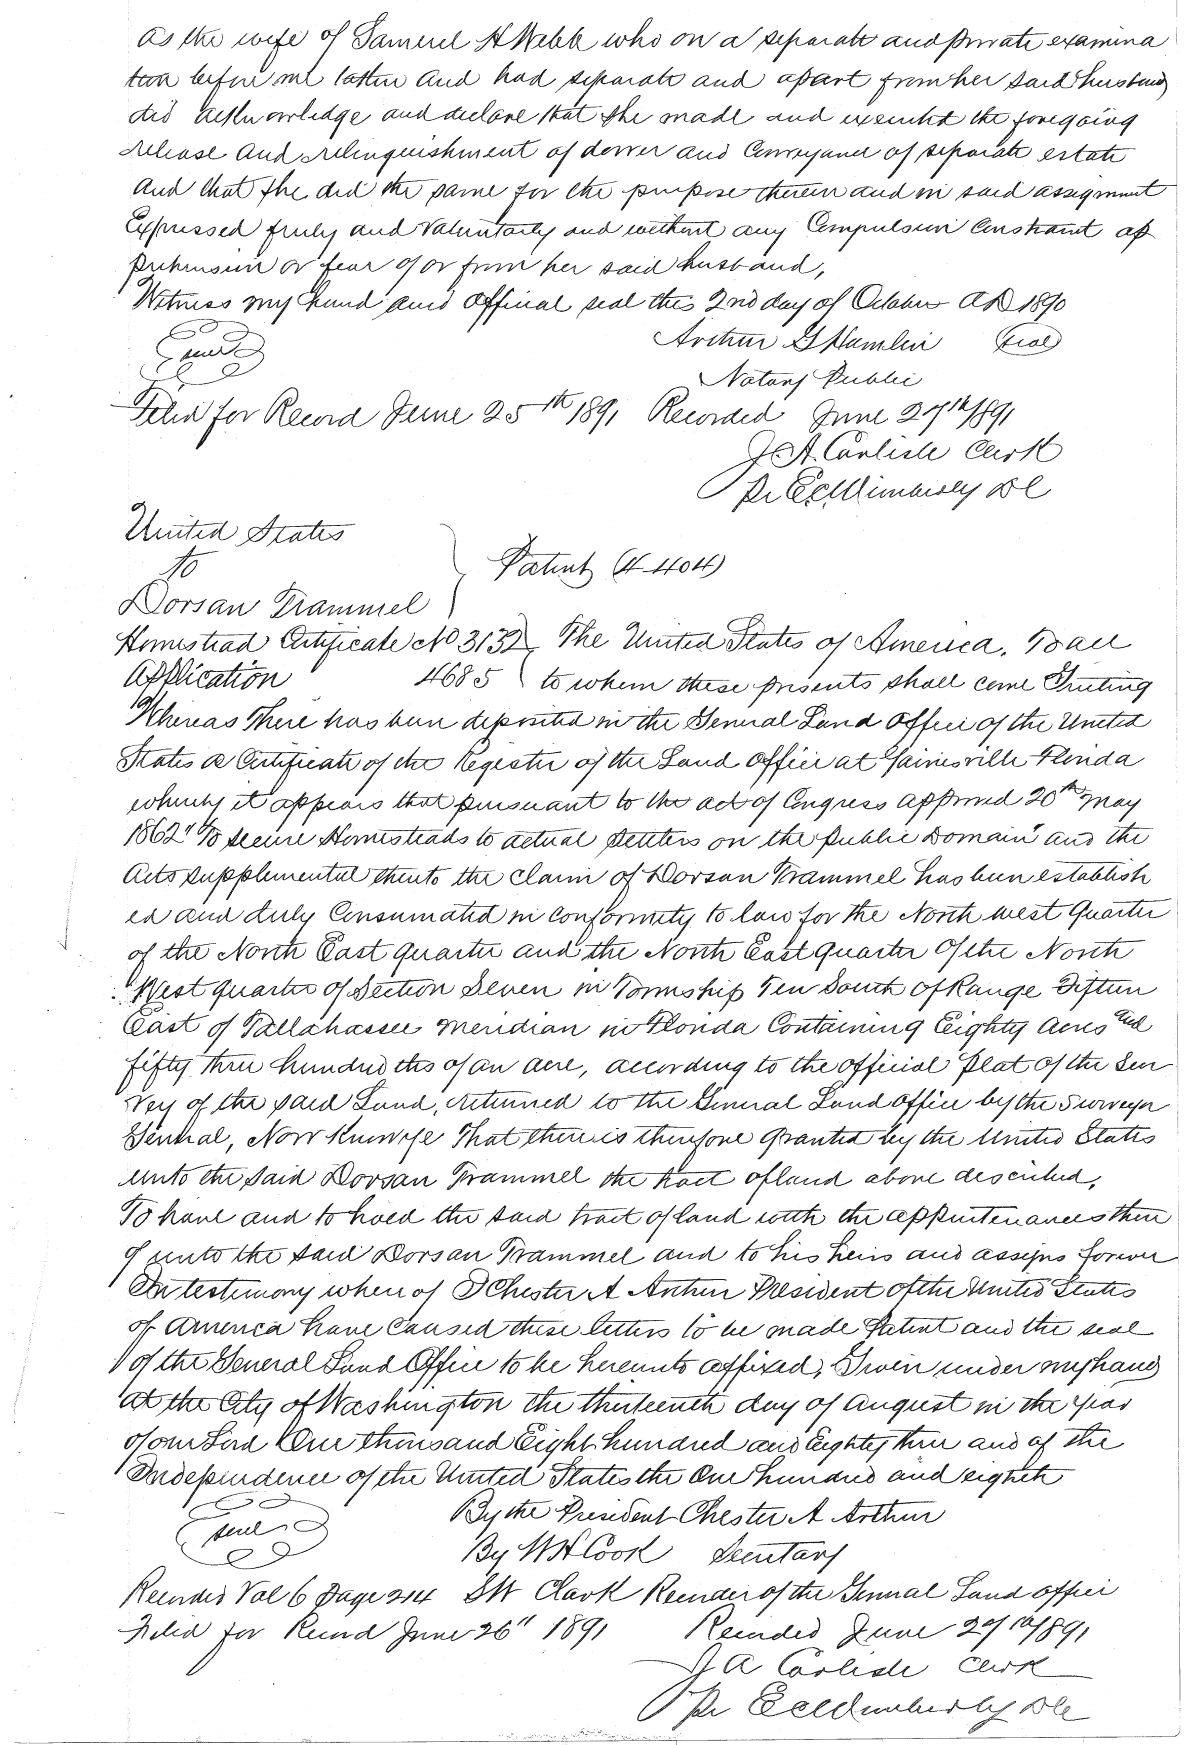 as the wife of Samuel H Webb who on a separate and private examina
tion before me taken and had separate and apart from her said husband
did acknowledge and declare that she made and executed the foregoing
release and relinquishment of dower and conveyance of separate estate
And that she did the same for the purpose therein and in said assignment
Expressed freely and Voluntarily and without any Compulsion Constraint ap
prehension or fear of or from her said husband,
Witness my hand and official seal this 2nd day of October AD 1890
Seal
Arthur G Hamlin Seal
Notary Public
Filed for Record June 25th 1891 Recorded June 27th 1891
J A. Carlisle Clerk
Pr E C Wimberly DC
United States
To
Patent (4-404)
Dorsan Trammel
Homestead Certificate No 3132 The United States of America, To all
Application 4685 to whom these presents shall come Greeting
Whereas There has been deposited in the General Land office of the United
States a Certificate of the Register of the Land office at Gainesville Florida
whereby it appears that pursuant to the act of Congress approved 20th May
1862 "To secure Homesteads to actual settlers on the public Domain" and the
Acts supplemental thereto the claim of Dorsan Trammel has been establish
ed and duly Consumated in conformity to law for the North west Quarter
of the North East quarter and the North East quarter of the North
West quarter of Section Seven in Township Ten South of Range Fifteen
East of Tallahassee Meridian in Florida Containing Eighty acres and
fifty three hundredths of an acre, according to the official Plat of the Sur
vey of the said Land, returned to the General Land office by the Surveyor
General, Now Know ye That there is therefore granted by the United States
unto the said Dorsan Trammel the tract of land above described,
To have and to hold the said tract of land with the appurtenances there
of unto the said Dorsan Trammel and to his heirs and assigns forever
In testimony where of I Chester A Arthur President of the United States
of America have caused these letters to be made Patent and the seal
of the General Land Office to be hereunto affixed, Given under my hand
at the City of Washington the thirteenth day of August in the year
of our Lord One thousand Eight hundred and Eighty three and of the
Independence of the United States the One hundred and eighth
Seal
By the President Chester A Arthur
By W H Cook Secretary
Recorded Vol 6 Page 244 S W Clark Recorder of the General Land office
Filed for Record June 26th 1891 Recorded June 27th 1891
J A Carlisle Clerk
Pr E C Wimberly DC